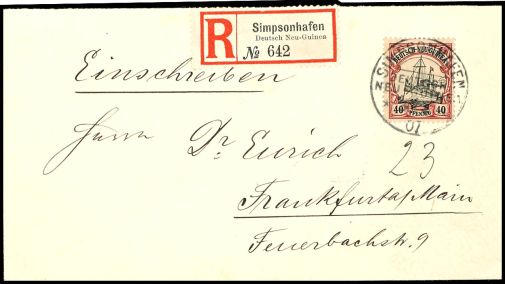 R
Simpsonhafen
Deutsch Neu-Guinea
№ 642
DEUTSCH-NEU-GUINEA
40 PFENNIG 40
SIMPSONHAFEN
07
Einschreiben
Herrn Dr. Eurich
23
Frankfurt a/Main
Feuerbachstr. 9